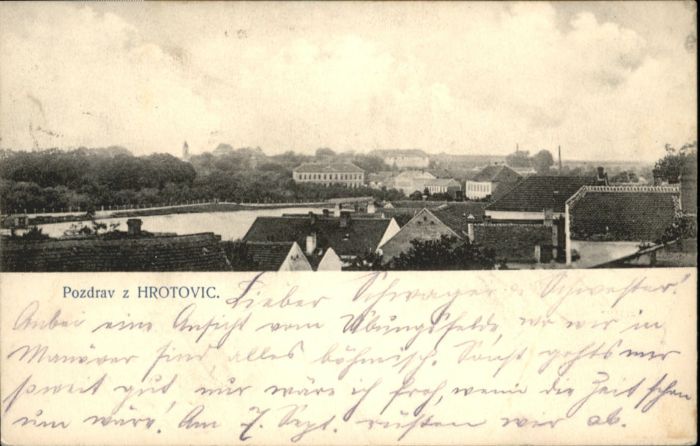 Pozdrav z HROTOVIC.
Lieber Schwager & Schwester!
Anbei eine Ansicht vom Übungsfelde, wo wir in
Manöver sind alles böhmisch. Sonst gehts mir
soweit gut, nur wäre ich froh, wenn die Zeit schon
um wäre! Am 7. Sept. rüsten wir ab.